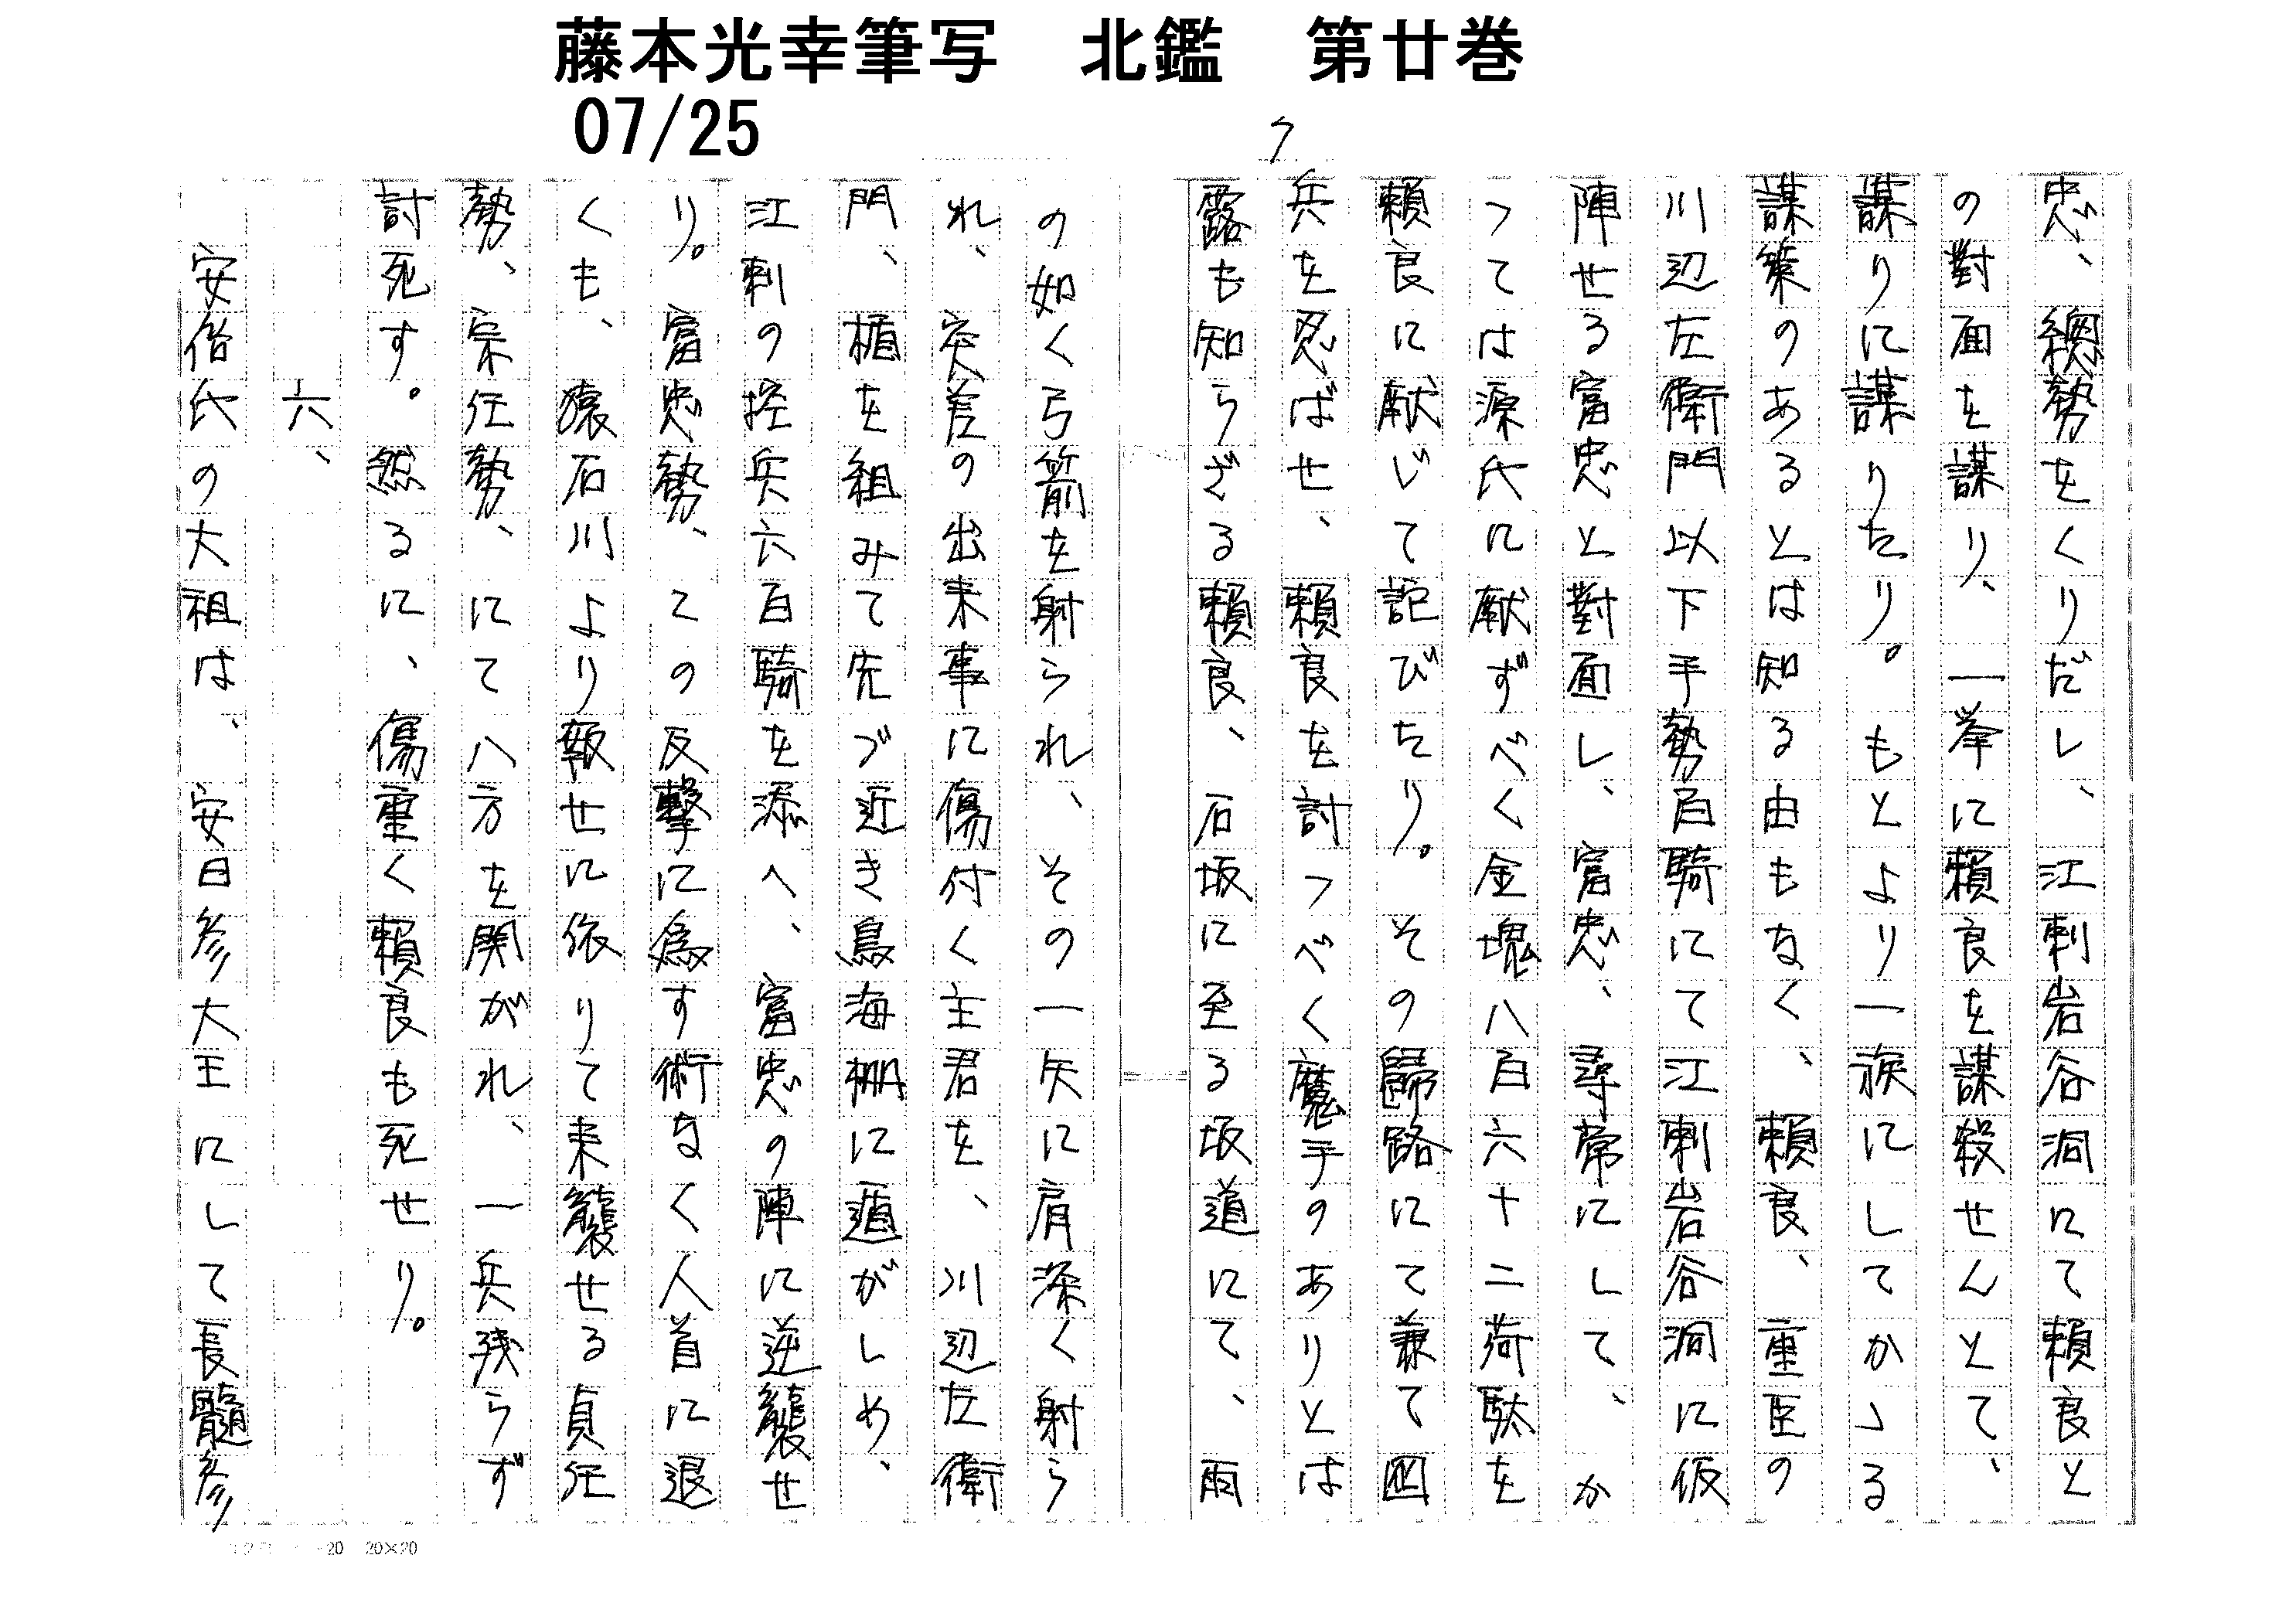 藤本光幸筆写　北鑑　第廿巻
07/25
7
忠、總勢をくりだし、江刺岩谷洞にて頼良と
の對面を謀り、一挙に頼良を謀殺せんとて、
謀りに謀りたり。もとより一族にしてかゝる
謀策のあるとは知る由もなく、頼良、重臣の
川辺左衛門以下手勢百騎にて江刺岩谷洞に仮
陣せる富忠と對面し、富忠、尋常にして、か
つては源氏に献ずべく金塊八百六十二荷駄を
頼良に献じて詫びたり。その歸路にて兼て四
兵を忍ばせ、頼良を討つべく魔手のありとは
露も知らざる頼良、石坂に至る坂道にて、雨
の如く弓箭を射られ、その一矢に肩深く射ら
れ、突差の出来事に傷付く主君を、川辺左衛
門、楯を組みて先づ近き鳥海柵に遁がしめ、
江刺の控兵六百騎を添へ、富忠の陣に逆襲せ
り。富忠勢、この反撃に為す術なく人首に退
くも、猿石川より報せに依りて来襲せる貞任
勢、宗任勢、にて八方を関がれ、一兵残らず
討死す。然るに、傷重く頼良も死せり。
六、
安倍氏の大祖は、安日彦大王にして長髄彦
20　20×20